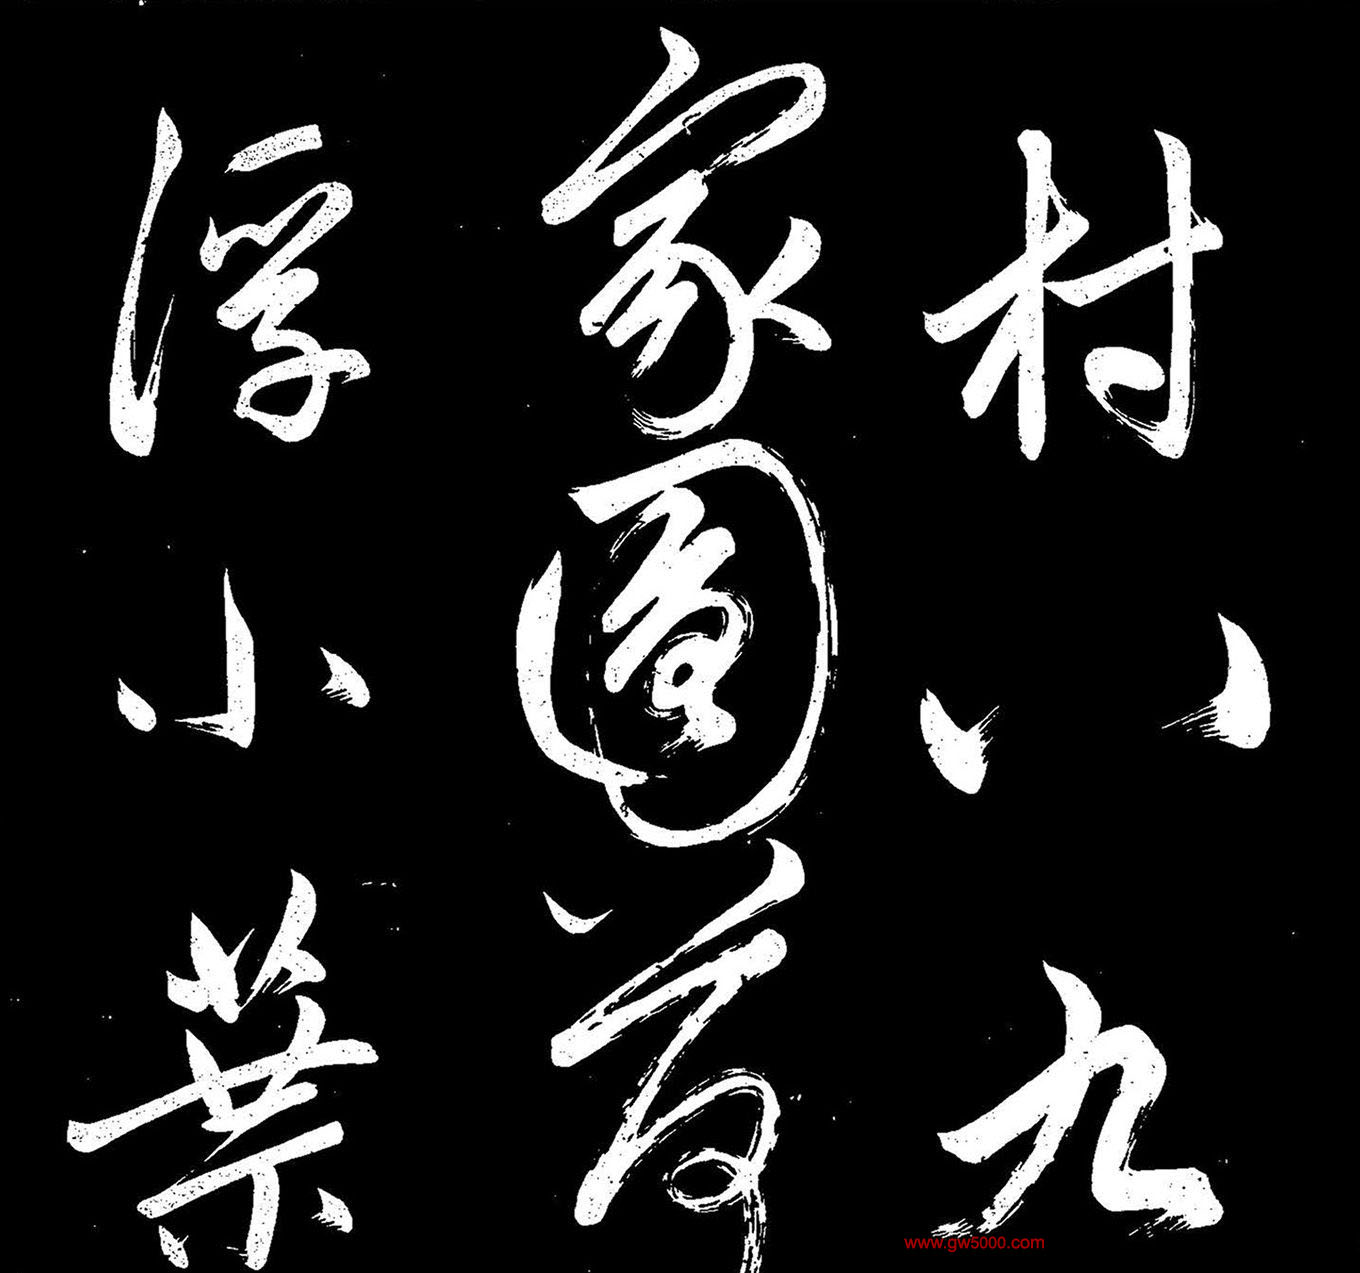 村八九
家園荷
浮小葉
www.gw5000.com